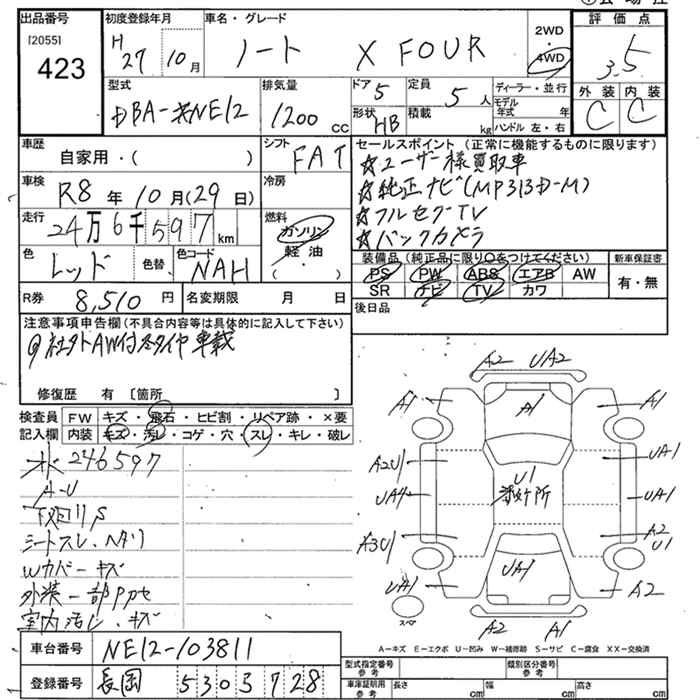 出品番号
[2055]
423
初度登録年月
H 27 10 月
車名・グレード
ノート X FOUR
2WD
・
4WD
評価点
3.5
外装 内装
C C
型式
DBA-NE12
排気量
1200 CC
ドア 5
定員 5 人
形状 HB
積載 kg
ディーラー・並行
モデル年式 年
ハンドル 左・右
車歴
自家用・( )
シフト
FAT
車検
R8 年 10 月 (29 日)
冷房
走行
24万6千597 km
燃料
ガソリン
軽油
( ・ )
色 レッド
色替
色コード NAH
R券 8,510 円
名変期限 月 日
セールスポイント (正常に機能するものに限ります)
☆ユーザー様買取車
☆純正ナビ(MP313D-M)
☆フルセグTV
☆バックカメラ
装備品 (純正品に限り○をつけてください)
PS PW ABS エアB AW
SR ナビ TV カワ
新車保証書
有・無
後日品
注意事項申告欄 (不具合内容等は具体的に記入して下さい)
社外AW付冬タイヤ車載
修復歴 有 [箇所 ]
検査員記入欄
FW キズ・飛石・ヒビ割・リペア跡・×要
内装 キズ・汚レ・コゲ・穴・スレ・キレ・破レ
246597
A-U
下回りS
シートスレ・ヘタリ
Wカバーキズ
外装一部アカセ
室内汚レ・キズ
A2 UA2
A1 A1 A1
A2U1 UA1
U1
UA4 UA1
A3U1 A2
U1
UA1 UA1 A2
スペア
A2 A1
A-キズ E-エクボ U-凹み W-補修跡 S-サビ C-腐食 XX-交換済
車台番号 NE12-103811
登録番号 長岡 530ち 728
型式指定番号
参考
類別区分番号
参考
車庫証明用
参考
長さ cm
幅 cm
高さ cm